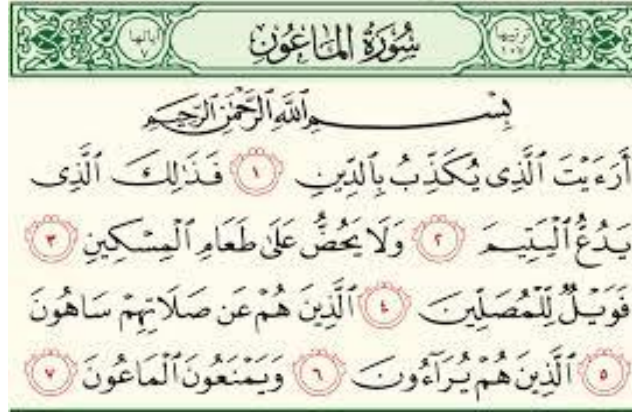 ترتيبها ١٠٧ سُورَةُ المَاعُونِ آياتها ٧
بِسْمِ اللَّهِ الرَّحْمَٰنِ الرَّحِيمِ
أَرَءَيْتَ ٱلَّذِى يُكَذِّبُ بِٱلدِّينِ ١ فَذَٰلِكَ ٱلَّذِى
يَدُعُّ ٱلْيَتِيمَ ٢ وَلَا يَحُضُّ عَلَىٰ طَعَامِ ٱلْمِسْكِينِ ٣
فَوَيْلٌ لِّلْمُصَلِّينَ ٤ ٱلَّذِينَ هُمْ عَن صَلَاتِهِمْ سَاهُونَ
٥ ٱلَّذِينَ هُمْ يُرَآءُونَ ٦ وَيَمْنَعُونَ ٱلْمَاعُونَ ٧